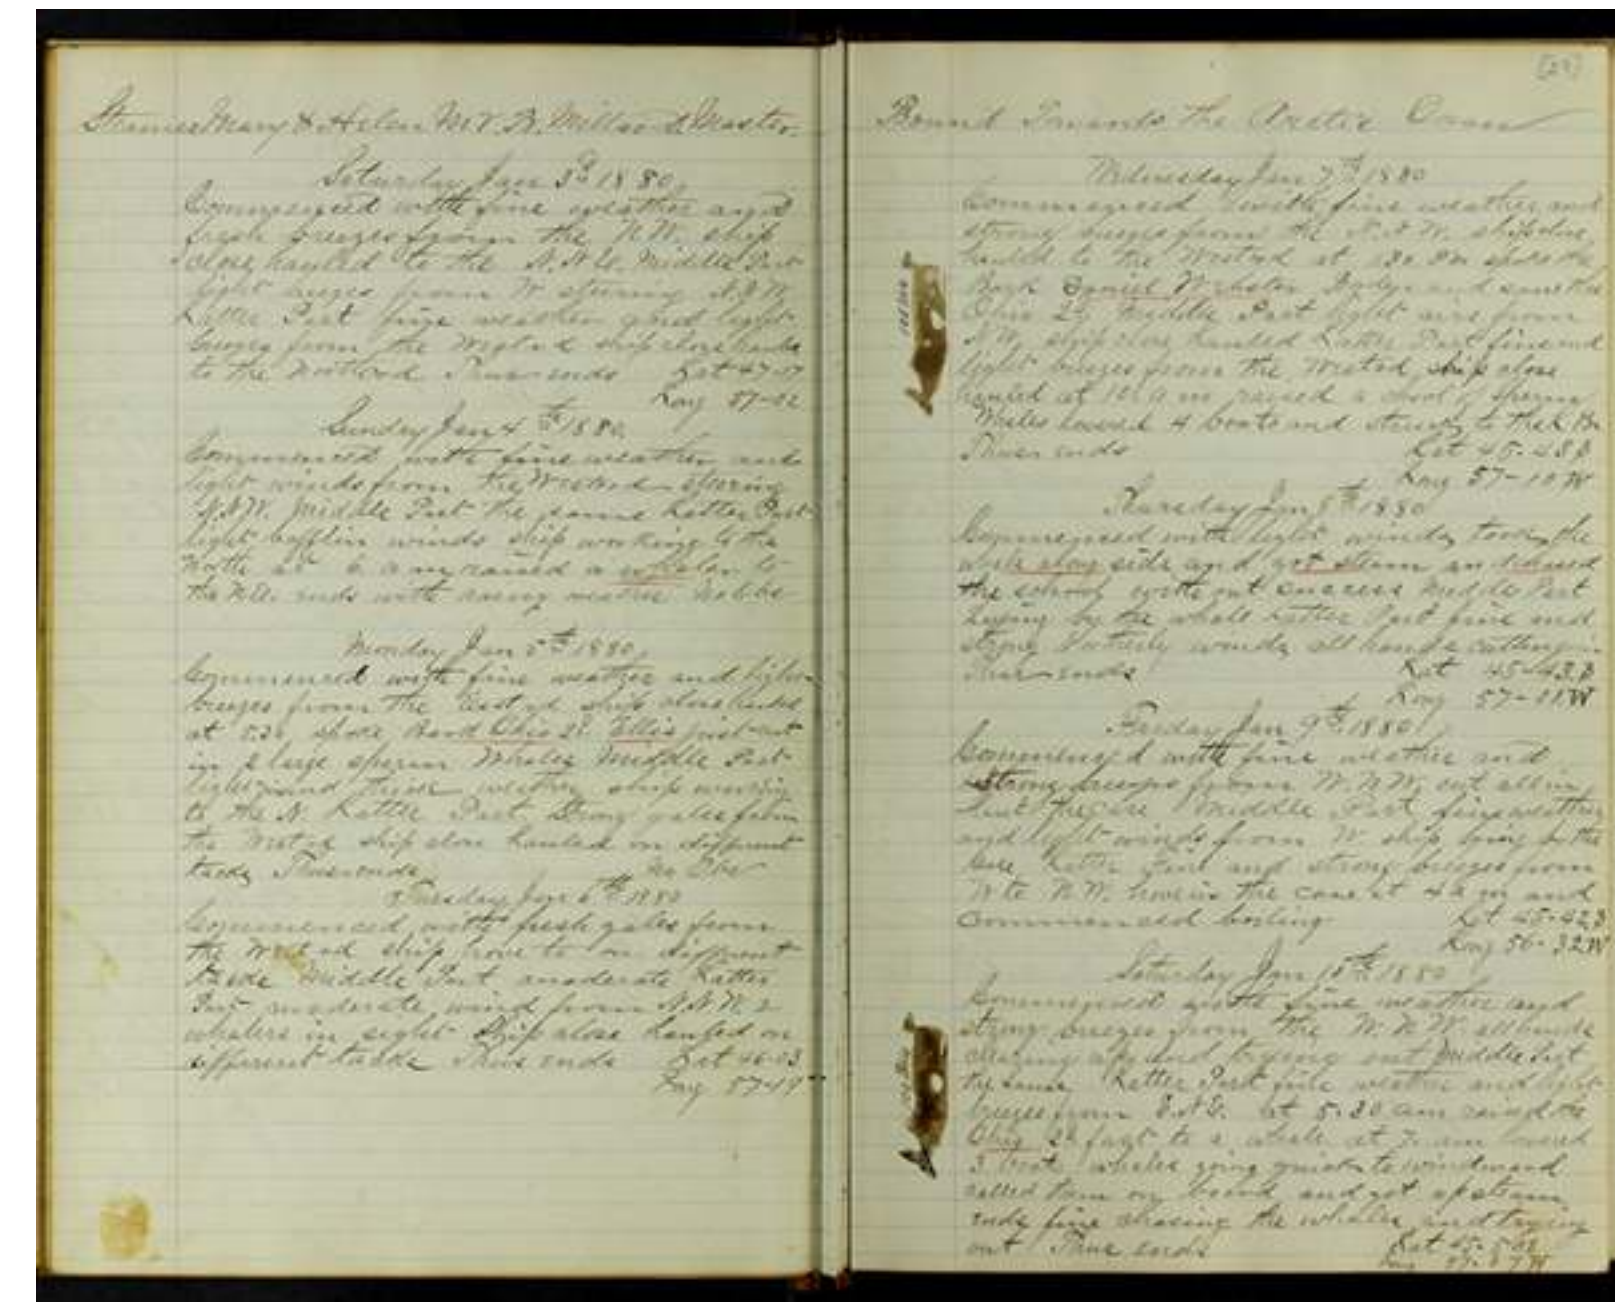 Steamer Mary & Helen M. V. B. Millard Master
Saturday Jan 3d 1880
Commenced with fine weather and
fresh breezes from the NW. ship
close hauled to the N.N.E. Middle Part
light from W steering N.N.W
Latter Part fine weather and light
breezes from the Westerd ship close hauled
to the Northerd Thus ends Lat 47-07
Long 57-02
Sunday Jan 4th 1880
Commenced with fine weather and
light winds from the Westerd steering
N.N.W. Middle Part the same Latter Part
light bafflin winds ship working to the
North at 6 am raised a whaler to
the NE. ends with weather No Obs
Monday Jan 5th 1880
Commenced with fine weather and light
breezes from the ship close hauled
at spoke Bark Ohio 2d Ellis just cut
in 2 large sperm Whales Middle Part
light wind weather ship working
to the N. Latter Part Strong gales from
the Westerd ship close hauled on different
tacks Thus ends No Obs
Tuesday Jan 6th 1880
Commenced with fresh gales from
the Westerd ship hove to on different
tacks Middle Part moderate Latter
Part moderate wind from N.N.W. 2
whalers in sight Ship close hauled on
different tacks Thus ends Lat 46-03
Long 57-19
[23]
Bound Towards the Arctic Ocean
Wednesday Jan 7th 1880
Commenced with fine weather and
strong breezes from the N.N.W. ship close
hauled to the Westerd at spoke the
Bark Daniel Webster and saw the
Ohio 2d Middle Part light airs from
NW. ship close hauled Latter Part fine and
light breezes from the Westerd ship close
hauled at 10 a m raised a school of sperm
Whales lowered 4 boats and struck to the L B.
Thus ends Lat 45-43 S
Long 57-10 W
Thursday Jan 8th 1880
Commenced with light winds took the
whale along side and got steam and chased
the school without success Middle Part
laying by the whale Latter Part fine and
strong winds all hands cutting in
Thus ends Lat 45-43 S
Long 57-11 W
Friday Jan 9th 1880
Commenced with fine weather and
Strong breezes from W.N.W. cut all in
but the Middle Part fine weather
and light winds from W ship laying by the
Latter fine and strong breezes from
W to N.W. hove in the case at 4 a m and
commenced boiling Lat 45-42 S
Long 56-32 W
Saturday Jan 10th 1880
Commenced with fine weather and
strong breezes from the W.N.W. all hands
clearing up and trying out Middle Part
the same Latter Part fine weather and light
breezes from at 5.30 am raised the
Ohio 2d fast to a whale at 7 am lowered
3 boats whales going quick to windward
called them on board and got up steam
ends fine chasing the whales and trying
out Thus ends Lat 45-
Long 57-